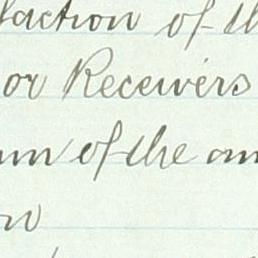 faction of th
or Receivers
um of the am
on